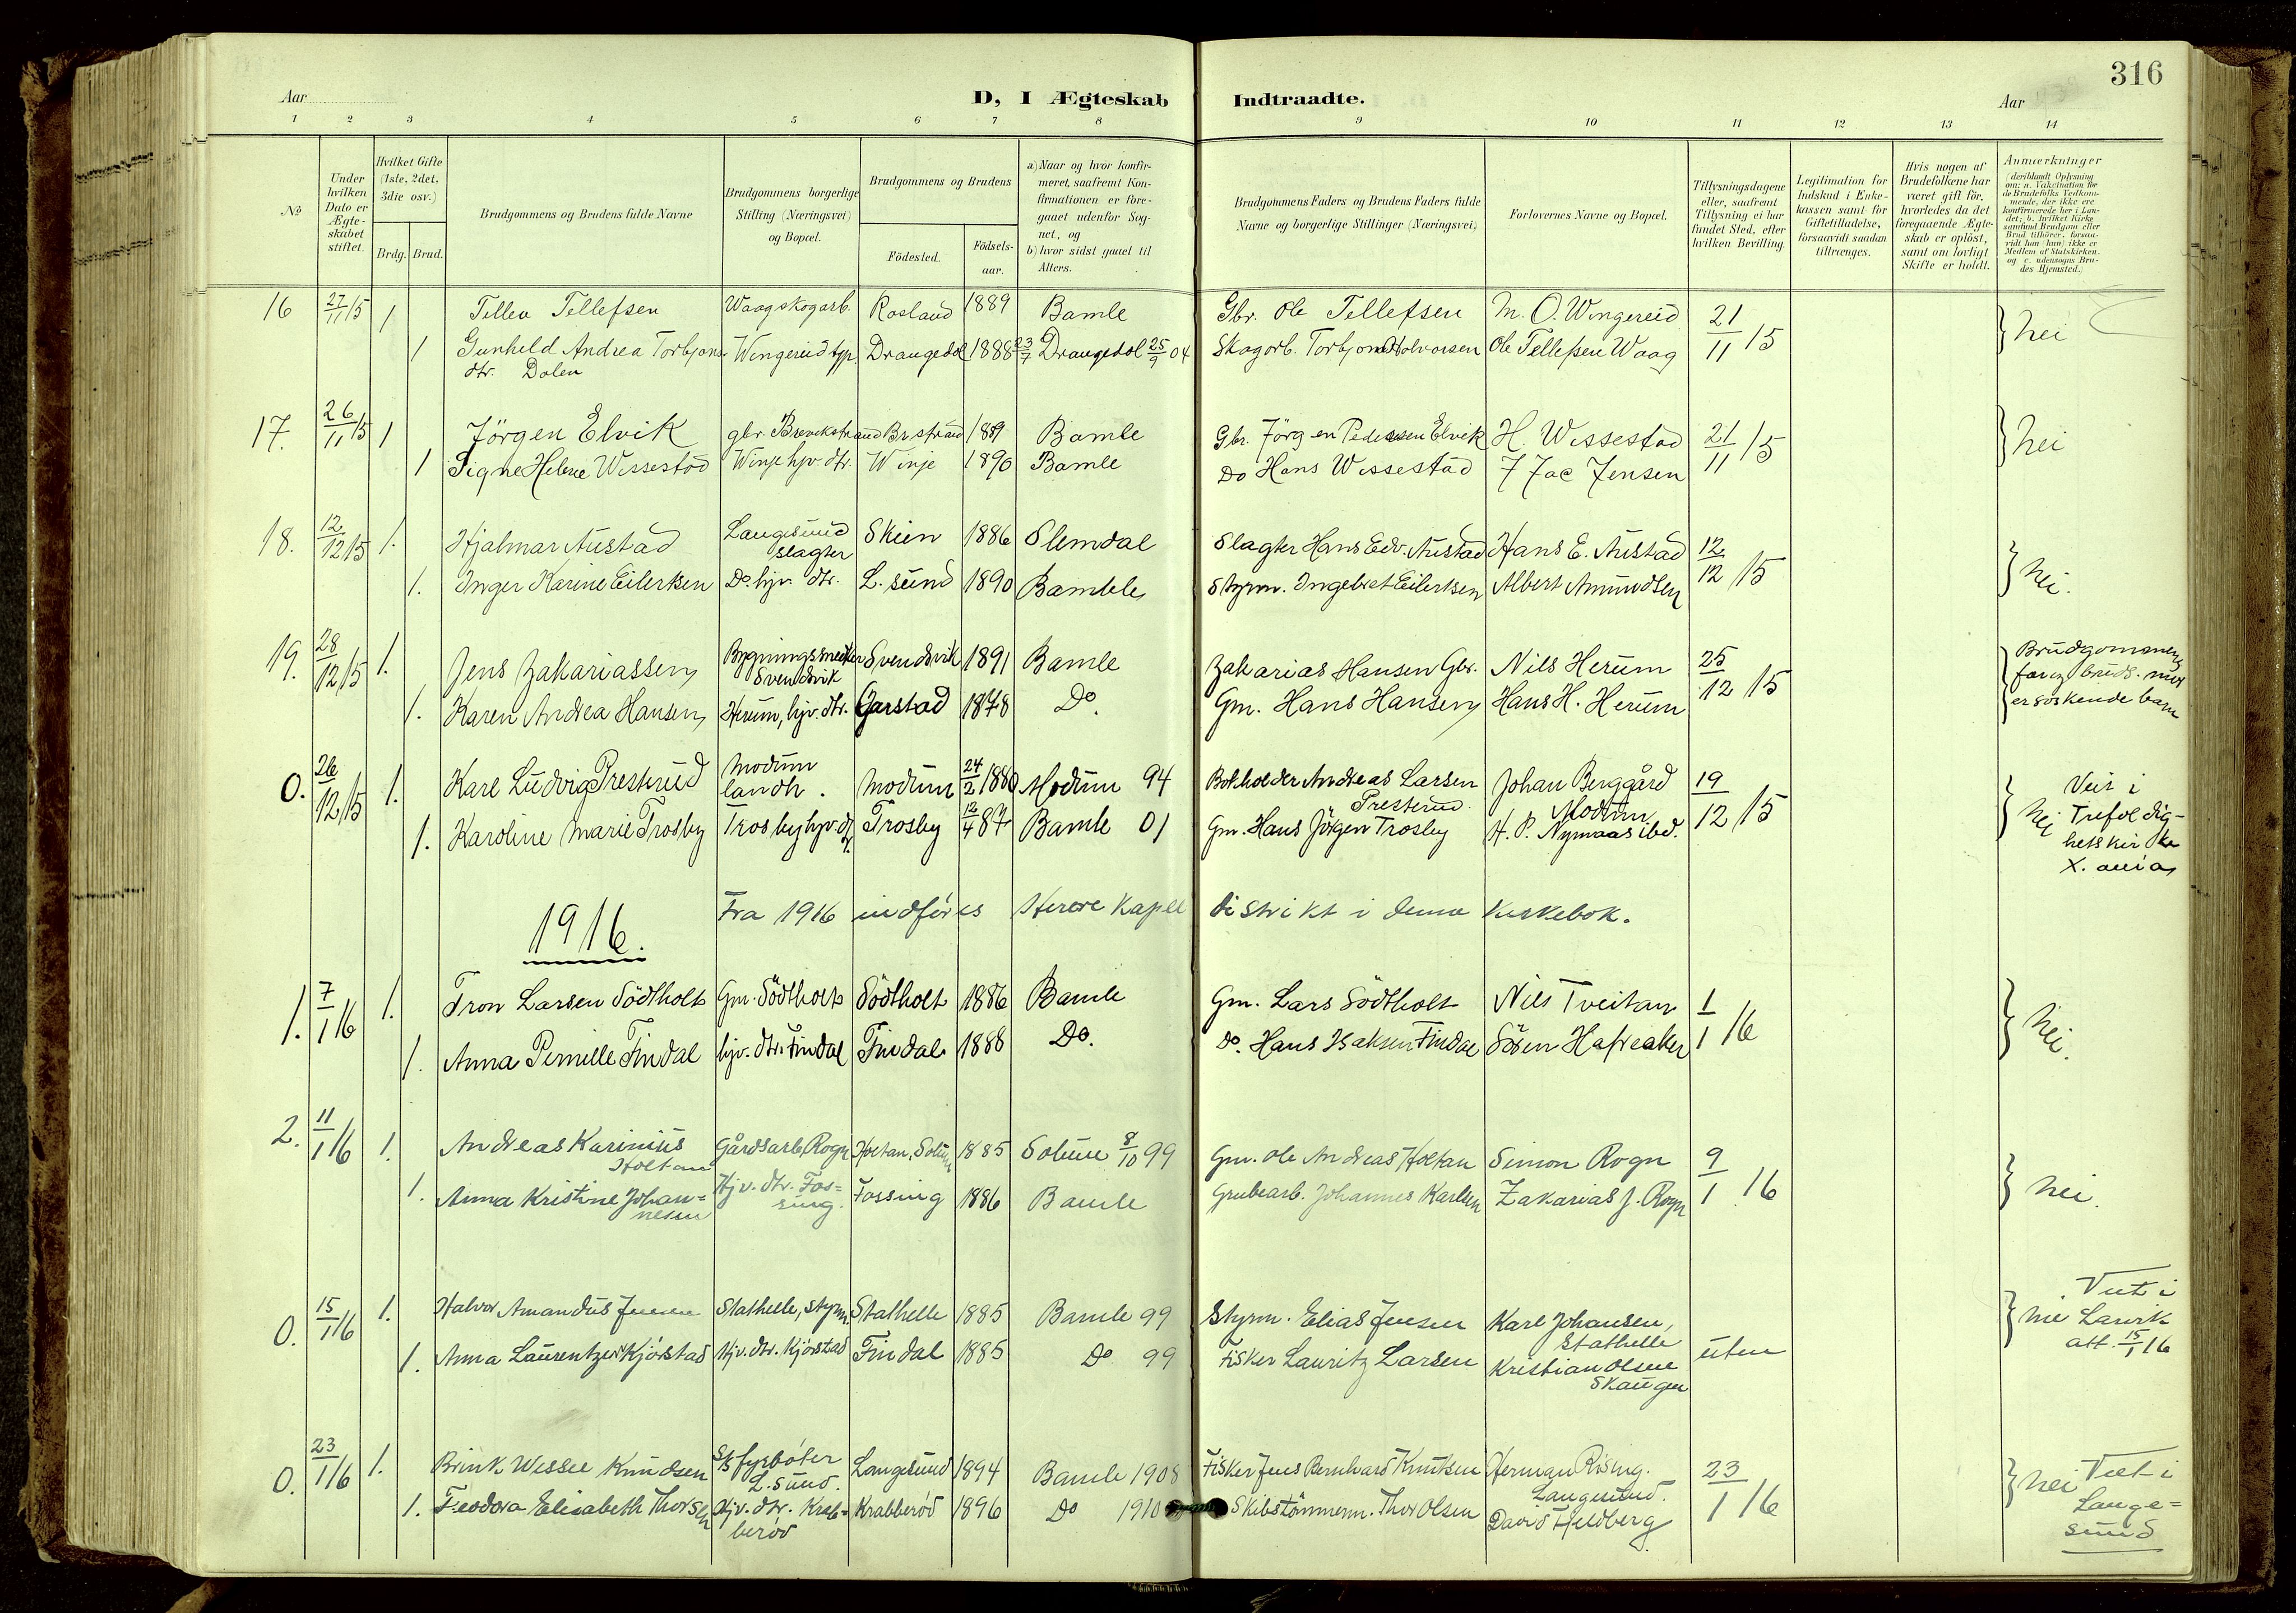 316
Aar
D, I Ægteskab Indtraadte.
Aar
1 2 3 4 5 6 7 8 9 10 11 12 13 14
No
Under hvilken Dato er Ægteskabet stiftet.
Hvilket Gifte (1ste, 2det, 3die osv.)
Brdg. Brud.
Brudgommens og Brudens fulde Navne
Brudgommens borgerlige Stilling (Næringsvei) og Bopæl.
Brudgommens og Brudens
Födested.
Födsels-aar.
a) Naar og hvor konfirmeret, saafremt Konfirmationen er foregaaet udenfor Sognet, og
b) hvor sidst gaaet til Alters.
Brudgommens Faders og Brudens Faders fulde Navne og borgerlige Stillinger (Næringsvei)
Forlovernes Navne og Bopæl.
Tillysningsdagene eller, saafremt Tillysning ei har fundet Sted, efter hvilken Bevilling.
Legitimation for Indskud i Enkekassen samt for Giftetilladelse, forsaavidt saadan tiltrænges.
Hvis nogen af Brudefolkene har været gift för, hvorledes da det foregaaende Ægteskab er oplöst, samt om lovligt Skifte er holdt.
Anmerkninger
(deriblandt Oplysning om: a. Vakcination for de Brudefolks Vedkommende, der ikke ere konfirmerede her i Landet; b. hvilket Kirkesamfund Brudgom eller Brud tilhörer, forsaavidt han (hun) ikke er Medlem af Statskirken, og c. udensogns Brudes Hjemsted.)
16 27/11 15 1 Tellev Tellefsen Waagskogarb. Rosland 1889 Bamle Gbr. Ole Tellefsen M. O. Wingereid 21/11 15 nei
1 Gunhild Andrea Torbjøns- Wingereid tjp. Drangedal 1888 23/7 Drangedal 25/9 04 Skogarb. Torbjørn Halvorsen Ole Tellefsen Waag
dtr. Dalen
17. 26/11 15 1 Jörgen Elvik gbr. Brevikstrand Br.strand 1889 Bamle Gbr. Jörgen Pedersen Elvik H. Wissestad 21/11 15 nei
1 Signe Helene Wissestad Winje hjv. dtr. Winje 1890 Bamle Do Hans Wissestad J Jac Jensen
18. 12/12 15 1. Hjalmar Austad Langesund slagter Skien 1886 Slemdal Slagter Hans Edv. Austad Hans E. Austad 12/12 15 nei.
1. Inger Karine Eilertsen Do. hjv. dtr. L. sund 1890 Bamble Styrm. Ingebret Eilertsen Albert Amundsen
19. 28/12 15 1. Jens Zakariassen Bygningssnedker Svendsvik Svendsvik 1891 Bamle Zakarias Hansen Gbr. Nils Herum 25/12 15 Brudgommens far og bruds. mor er söskende barn
1. Karen Andrea Hansen Herum, hjv. dtr. Garstad 1878 Do. Gm. Hans Hansen Hans H. Herum
0. 26/12 15 1. Karl Ludvig Presterud Modum landh. Modum 24/2 1880 Modum 94 Andreas Larsen Presterud Johan Berggård Modum 19/12 15 nei Viet i Trefoldighetskirke X.ania
1. Karoline Marie Trosby Trosby hjv. dt. Trosby 12/4 87 Bamle 01 Gm. Hans Jörgen Trosby H. P. Nymaas ibd.
1916.
Fra 1916 indföres Herre Kapel distrikt i denne kirkebok.
1. 7/1 16 1. Tron Larsen Södtholt Gm. Södtholt Södtholt 1886 Bamle Gm. Lars Södtholt Nils Tveitan 1/1 16 nei.
1. Anna Pernille Findal hjv. dtr. Findal Findal. 1888 Do. Do. Hans Isaksen Findal Sören Hafreaker
2. 11/1 16 1. Andreas Karinius Holtan Gårdsarb. Rogn Holtan, Solum 1885 Solum 8/10 99 Gm. Ole Andreas Holtan Simon Rogn 9/1 16 nei.
1. Anna Kristine Johan=nesen Hjv. dtr. Fos=sing. Fossing 1886 Bamle Grubearb. Johannes Karlsen Zakarias J. Rogn
0. 15/1 16 1. Halvor Amandus Jensen Stathelle, styrm. Stathelle 1885 Bamle 99 Styrm. Elias Jensen Karl Johansen, Stathelle uten nei Viet i Larvik att. 15/1 16
1. Anna Laurentze Kjörstad Hjv. dtr. Kjörstad Findal 1885 Do 99 Fisker Lauritz Larsen Kristian Olsen Skaugen
0. 23/1 16 1. Brink Wessel Knudsen S/s fyrböter L. sund. Langesund 1894 Bamle 1908 Fisker Jens Bernhard Knutsen Herman Rising. Langesund. 23/1 16 nei Viet i Lange=sund
1. Feodora Elisabeth Thorsen Hjv. dtr. Krab=beröd Krabberöd 1896 Do 1910 Skibstömmerm. Thor Olsen David Heldberg